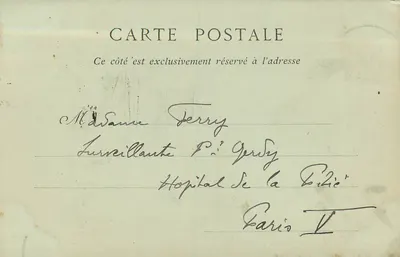 CARTE POSTALE
Ce côté est exclusivement réservé à l'adresse
Madame Ferry
Surveillante Pon Gerdy
Hopital de la Pitié
Paris V